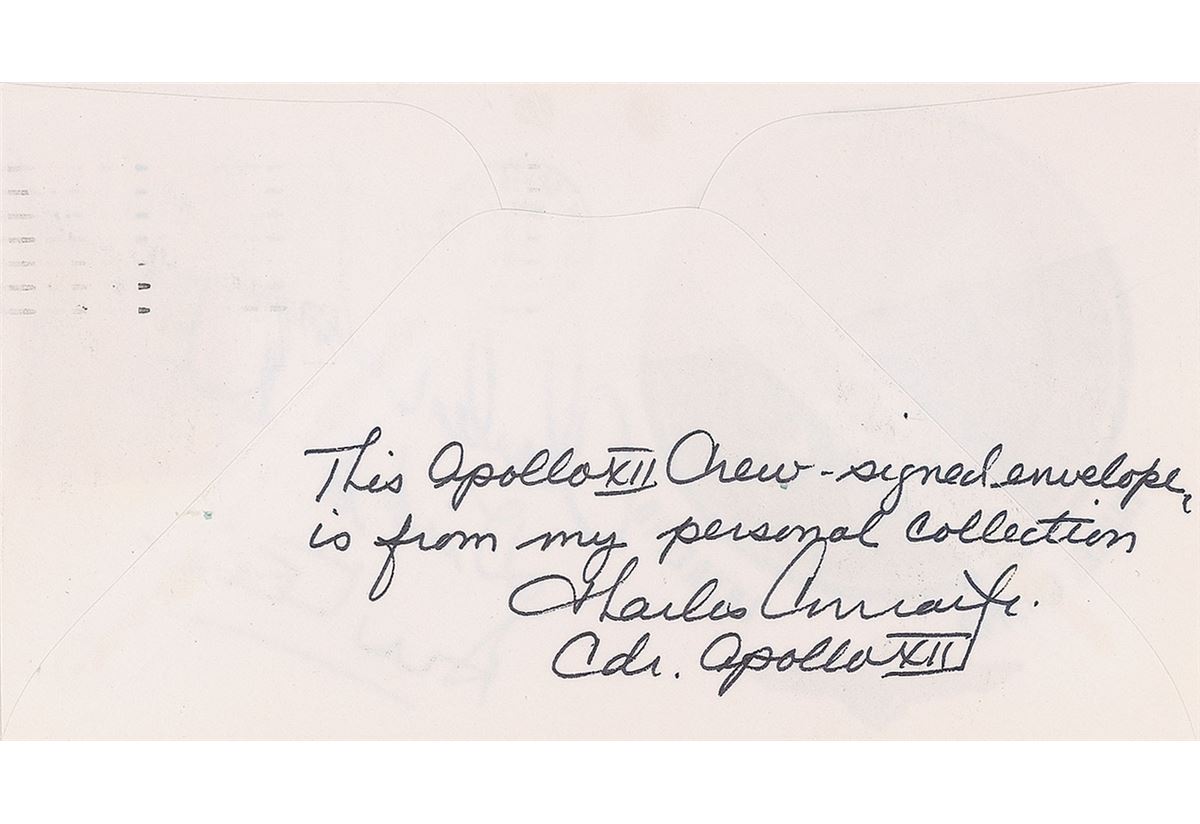 This Apollo XII Crew-signed envelope,
is from my personal collection
Charles Conrad Jr.
Cdr. Apollo XII